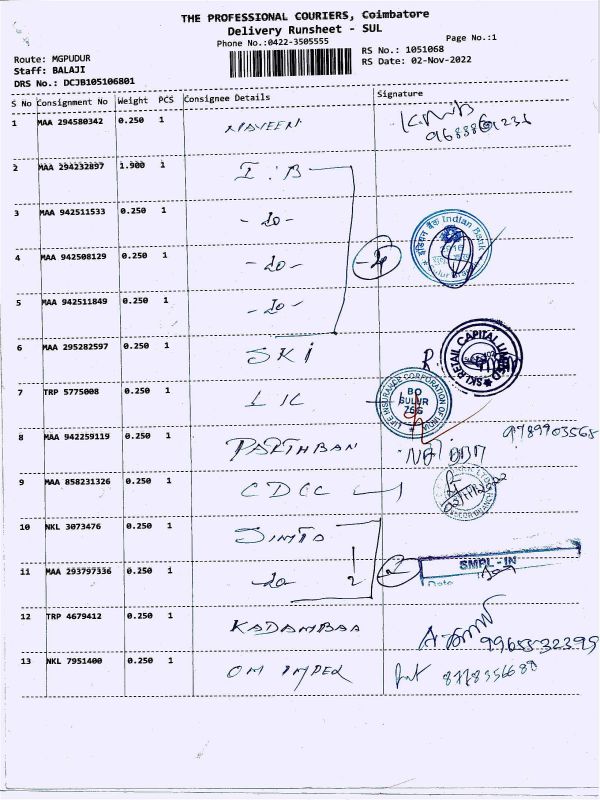 THE PROFESSIONAL COURIERS, Coimbatore
Delivery Runsheet - SUL
Phone No.:0422-3505555
Page No.:1
Route: MGPUDUR
Staff: BALAJI
DRS No.: DCJB105106801
RS No.: 1051068
RS Date: 02-Nov-2022
S No Consignment No Weight PCS Consignee Details Signature
1 MAA 294580342 0.250 1 NAVEEN
2 MAA 294232897 1.900 1 I.B
3 MAA 942511533 0.250 1 - do -
4 MAA 942508129 0.250 1 - do -
इंडियन बैंक Indian Bank
5 MAA 942511849 0.250 1 - do -
6 MAA 295282597 0.250 1 SKI
SKI RETAIL CAPITAL LIMITED
7 TRP 5775008 0.250 1 LIC
LIFE INSURANCE CORPORATION OF INDIA
BO
SULUR
8 MAA 942259119 0.250 1 PARTHBAN 9789903568
9 MAA 858231326 0.250 1 CDCC
10 NKL 3073476 0.250 1
11 MAA 293797336 0.250 1 - do - 2
SMPL - IN
Date
12 TRP 4679412 0.250 1 KADAMBAA 9965532399
13 NKL 7951400 0.250 1 OM IMPEX